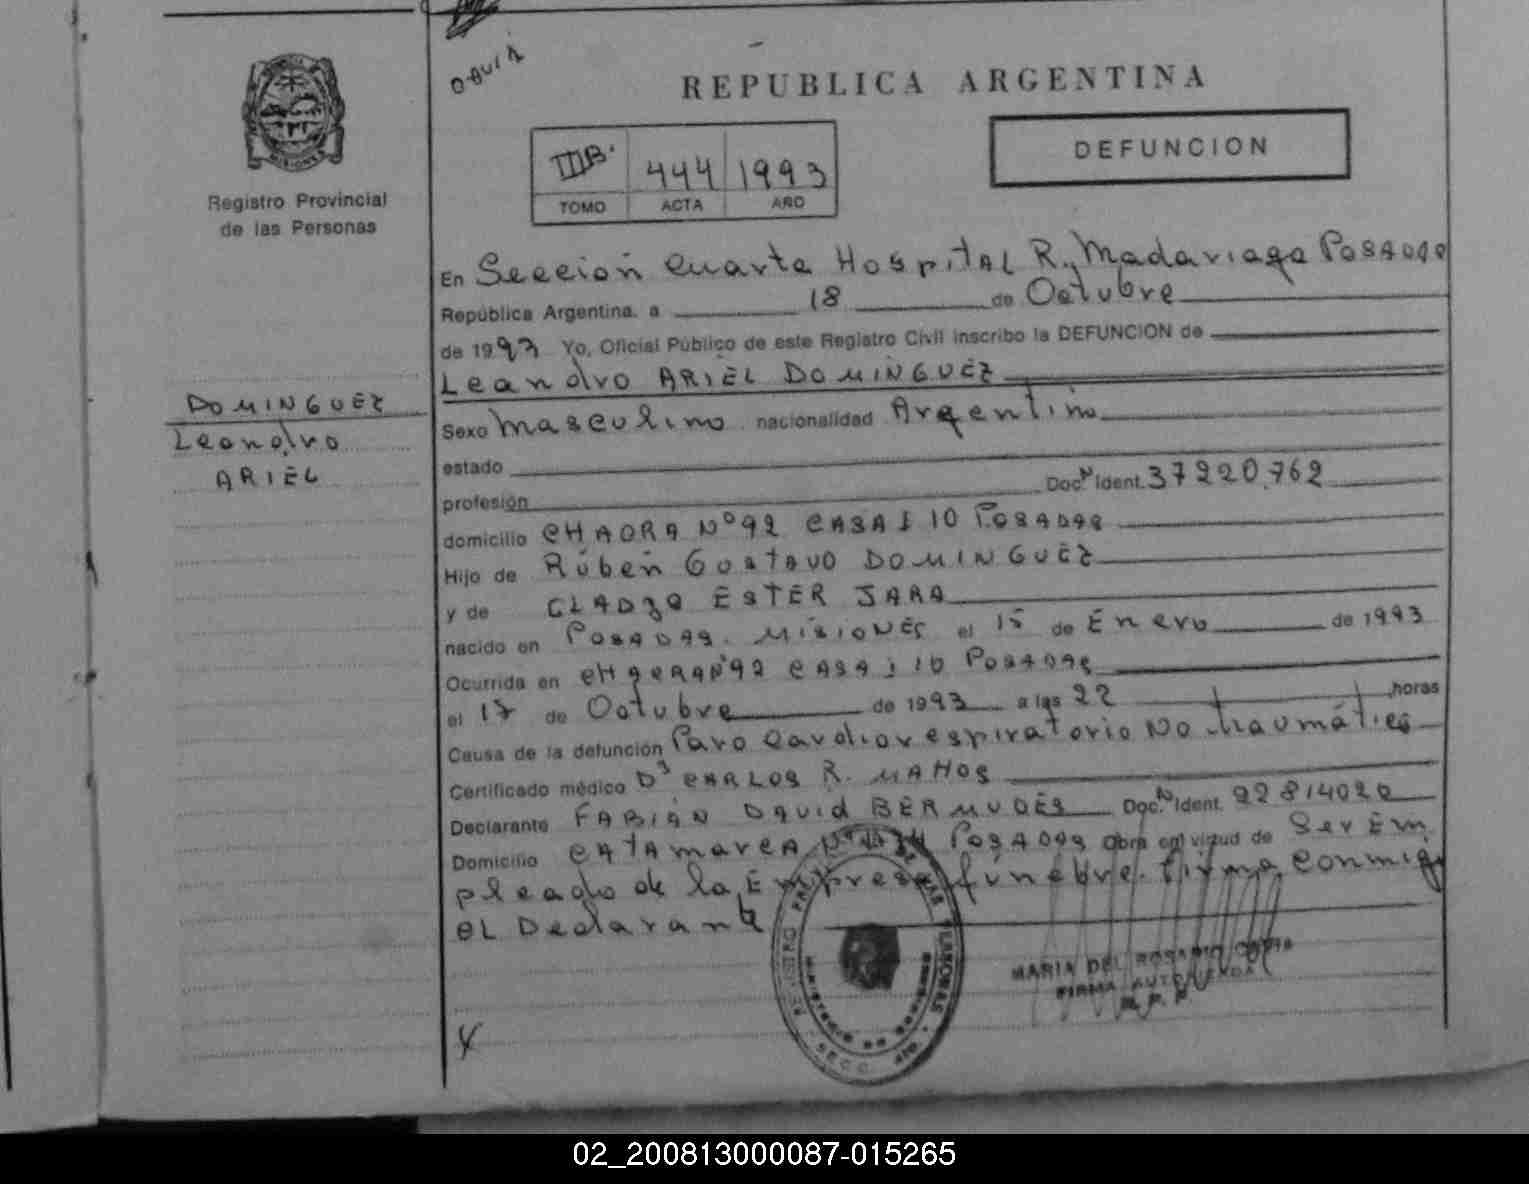 MISIONES
Registro Provincial
de las Personas
DOMINGUEZ
Leandro
ARIEL
REPUBLICA ARGENTINA
DEFUNCION
IIIB. 444 1993
TOMO ACTA AÑO
En Sección Cuarta HospitAL R. Madariaga POSADAS
República Argentina, a 18 de Octubre
de 1993 Yo, Oficial Público de este Registro Civil inscribo la DEFUNCION de
Leandro ARIEL DOMINGUEZ
Sexo Masculino nacionalidad Argentino
estado
profesión Doc. N Ident. 37220.762
domicilio CHACRA Nº 92 CASA 110 POSADAS
Hijo de Rubén Gustavo DOMINGUEZ
y de ESTER JARA
nacido en POSADAS. MISIONES el 15 de Enero de 1993
Ocurrida en CHACRA Nº 92 CASA 110 POSADAS
el 17 de Octubre de 1993 a las 22 horas
Causa de la defunción Paro Cardiorespiratorio No traumático
Certificado médico Dr CARLOS R. MAHOS
Declarante FABIÁN DAVID BERMUDES Doc. N Ident. 22814020
Domicilio CATAMARCA Nº POSADAS Obra en virtud de Ser Em
pleado de la Empresa fúnebre. Firma conmigo
el Declarante
MARIA DEL ROSARIO
FIRMA AUTORIZADA
R. P. P.
02_200813000087-015265